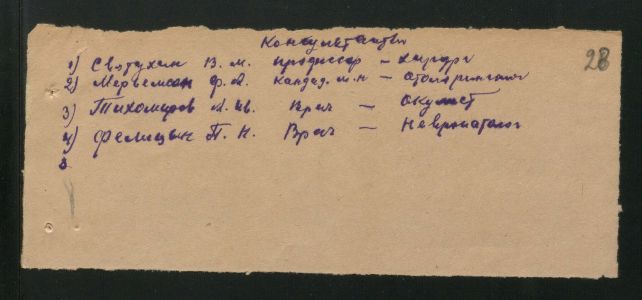 Консультанты
28
1) Святухин В. М. профессор – хирург
2) Ф. А. кандид. м. н – отоларинголог
3) Тихомиров А. Ив. Врач – окулист
4) Фелицын П. Н. Врач – Невропатолог